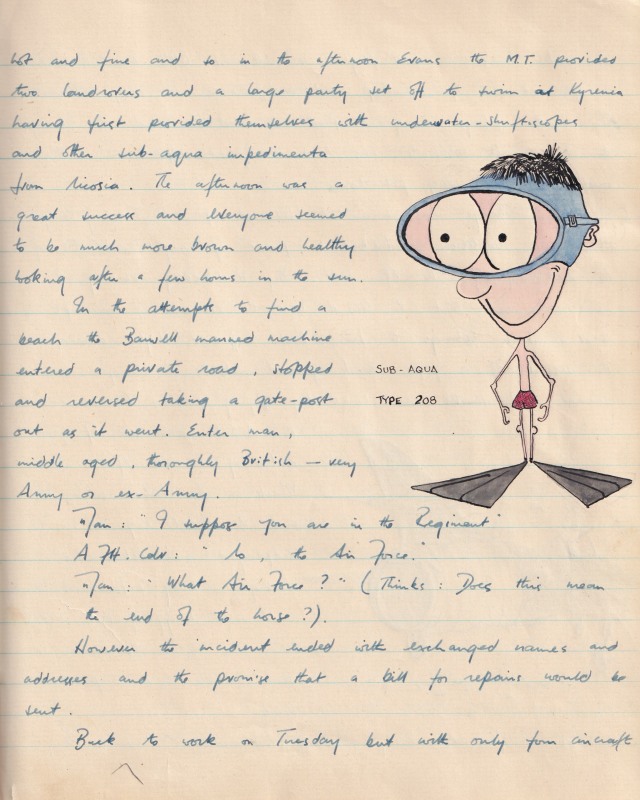 hot and fine and so in the afternoon Evans the M.T. provided
two landrovers and a large party set off to swim at Kyrenia
having first provided themselves with underwater-shuftiscopes
and other sub-aqua impedimenta
from Nicosia. The afternoon was a
great success and everyone seemed
to be much more brown and healthy
looking after a few hours in the sun.
In the attempts to find a
beach the Barwell manned machine
entered a private road, stopped
and reversed taking a gate-post
out as it went. Enter man,
middle aged, thoroughly British — very
Army or ex-Army.
SUB-AQUA
TYPE 208
Man: "I suppose you are in the Regiment"
A Flt. Cdr: "No, the Air Force."
Man: "What Air Force?" (Thinks: Does this mean
the end of the horse?).
However the incident ended with exchanged names and
addresses and the promise that a bill for repairs would be
sent.
Back to work on Tuesday but with only four aircraft